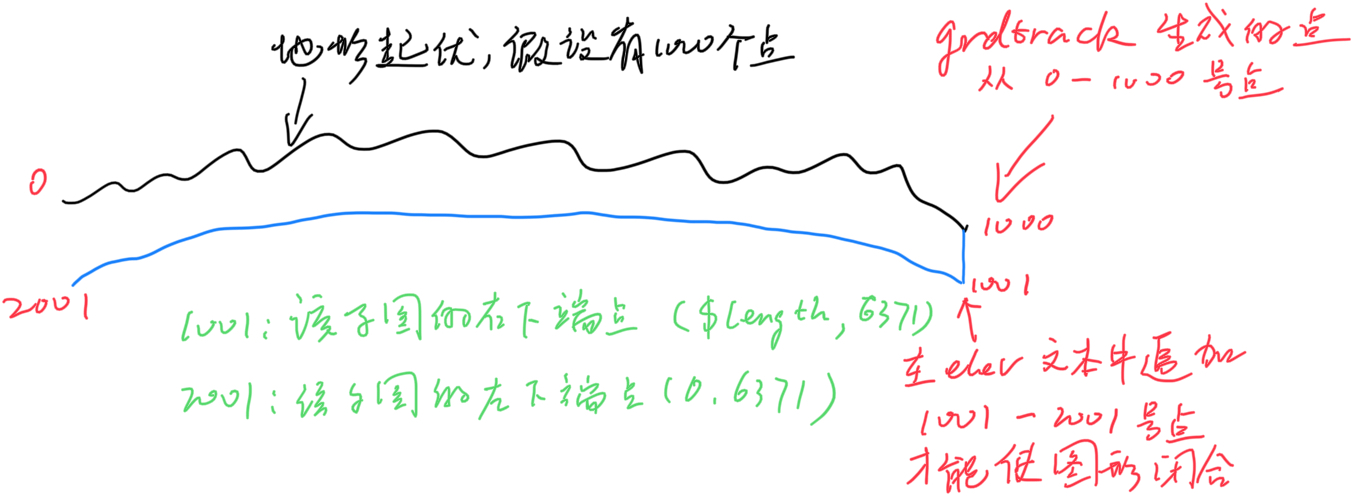 地形起伏,假设有1000个点
grdtrack 生成的点
从 0-1000 号点
0
1000
2001
1001
1001: 该子图的右下端点 ($length, 6371)
2001: 该子图的左下端点 (0, 6371)
在 elev 文本中追加
1001-2001 号点
才能使图形闭合